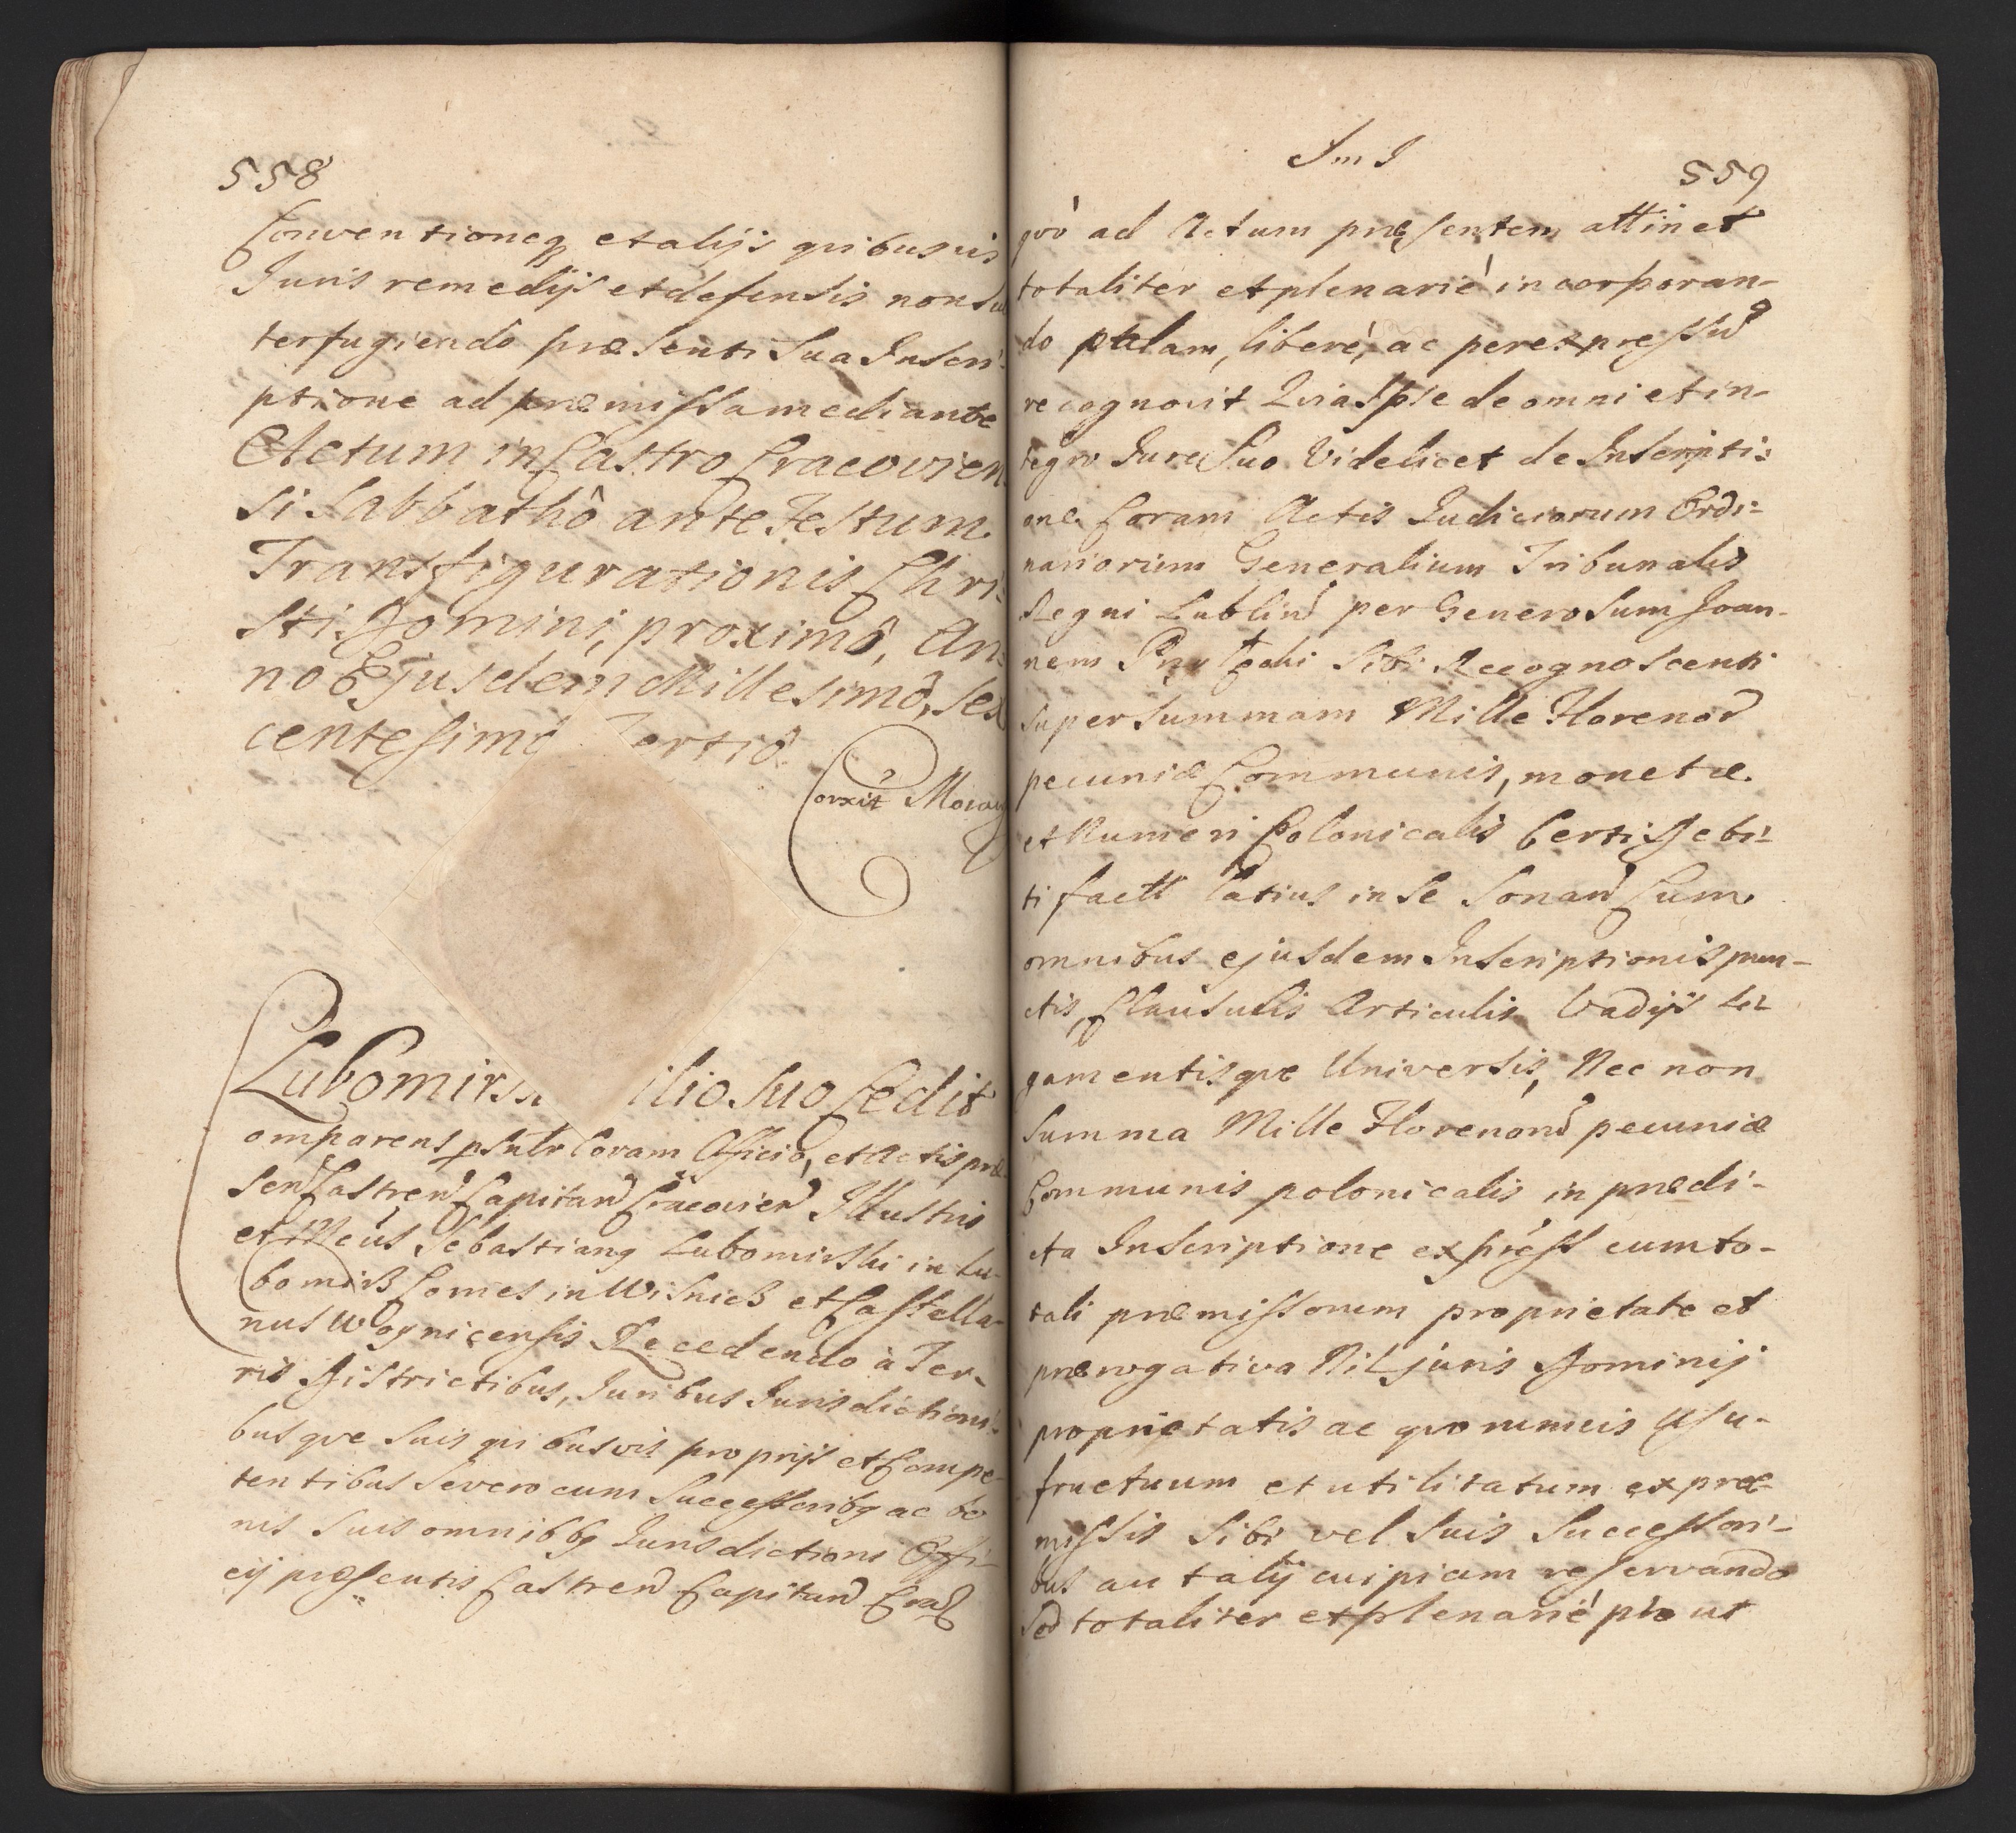 558
Conventioneq₃ et alijs quibusuis
Juris remedijs et defensis non su
terfugiendô præsenti Sua Inscri-
ptione ad præmissa mediante
Actum in Castro Cracovien
si Sabbathô ante Festum
Transfigurationis Chri-
sti Domini, proximô, An-
no Ejusdem Millesimô, sex
centesimô Tertiô.
Corxit Moray
Lubomirs ilio suo Cedit
omparens pśntr Coram Officiô, et Actis præ
sen Castren Capitan Cracovien Illustris
et Mcus Sebastianq Lubomirski in Lu-
bomirß Comes in Wisnicß et Castella-
nus Woynicensis Recedendo à Ter-
ris Districtibus, Juribus Jurisdictioni-
busqve suis quibusvis proprijs et Compe-
tentibus Severo cum Successoribq ac bo
nis Suis omnibbq Jurisdictioni Offi-
cij præsentis Castren Capitan Crac
Im J
559
qvò ad Actum præsentem attinet
totaliter et plenariè incorporan-
do ptalam, liberè, ac per expressū
recognovit Qvia Ipse de omni et in-
tegro Jure Suo Videlicet de Inscripti-
one Coram Actis Judiciorum Ordi-
nariorum Generalium Tribunalis
Regni Lublin per Generosum Joan-
nem Sibi Recognoscenti
super summam Mille Floreno
pecuniæ Communis, monetæ
et Numeri Polonicalis Certi Debi-
ti fact latius in Se Sonan Cum
omnibus ejusdem Inscriptionis pun-
ctis, Clausulis Articulis Vadijs Le
gamentisqve Universis, Nec non
Summa Mille Florenor pecuniæ
Communis polonicalis in prædi-
cta Inscriptione express cum to-
tali præmissorum proprietate et
prærogativa Nil juris Dominij
proprietatis ac qvorumvis Usu-
fructuum et utilitatum ex præ-
missis Sibi vel Suis Successori-
bus aut alij cuipiam reservando
Sed totaliter et plenariè pro ut